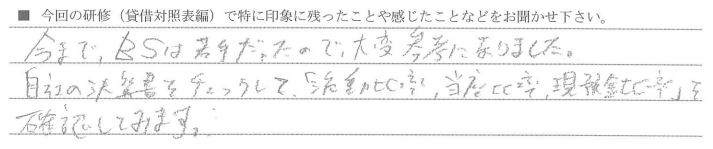 ■ 今回の研修（貸借対照表編）で特に印象に残ったことや感じたことなどをお聞かせ下さい。
今まで、BSは苦手だったので、大変参考に成りました。
自社の決算書をチェックして、「流動比率，当座比率，現預金比率」を
確認してみます。